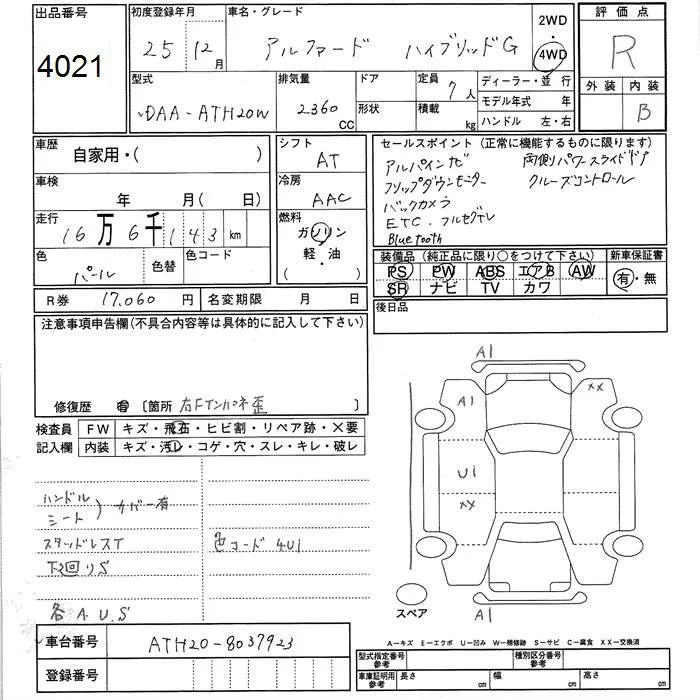 出品番号
4021
初度登録年月
25年12月
車名・グレード
アルファード ハイブリッドG
2WD
・
4WD
評価点
R
外装 内装
B
型式
DAA-ATH20W
排気量
2360
CC
ドア
形状
定員 7人
積載 kg
ディーラー・並行
モデル年式 年
ハンドル 左・右
車歴
自家用・( )
シフト
AT
車検
年 月( 日)
冷房
AAC
走行
16万6千143km
燃料
ガソリン
軽・油
( )
色
パール
色替
色コード
R券 17,060円
名変期限 月 日
セールスポイント(正常に機能するものに限ります)
アルパインナビ 両側パワースライドドア
フリップダウンモニター クルーズコントロール
バックカメラ
ETC. フルセグTV
Bluetooth
装備品(純正品に限り○をつけて下さい)
新車保証書
PS PW ABS エアB AW
SR ナビ TV カワ
有・無
後日品
注意事項申告欄(不具合内容等は具体的に記入して下さい)
修復歴 有 [箇所 右Fインパネ歪 ]
検査員
記入欄
FW キズ・飛石・ヒビ割・リペア跡・×要
内装 キズ・汚レ・コゲ・穴・スレ・キレ・破レ
ハンドル
シート
) カバー有
スタッドレスT
下廻りS
各A.U.S
色コード 4U1
A1
A1
XX
U1
XX
A1
スペア
車台番号 ATH20-8037923
登録番号
A-キズ E-エクボ U-凹み W-補修跡 S-サビ C-腐食 XX-交換済
型式指定番号
参考
種別区分番号
参考
車庫証明用
参考
長さ cm 幅 cm 高さ cm